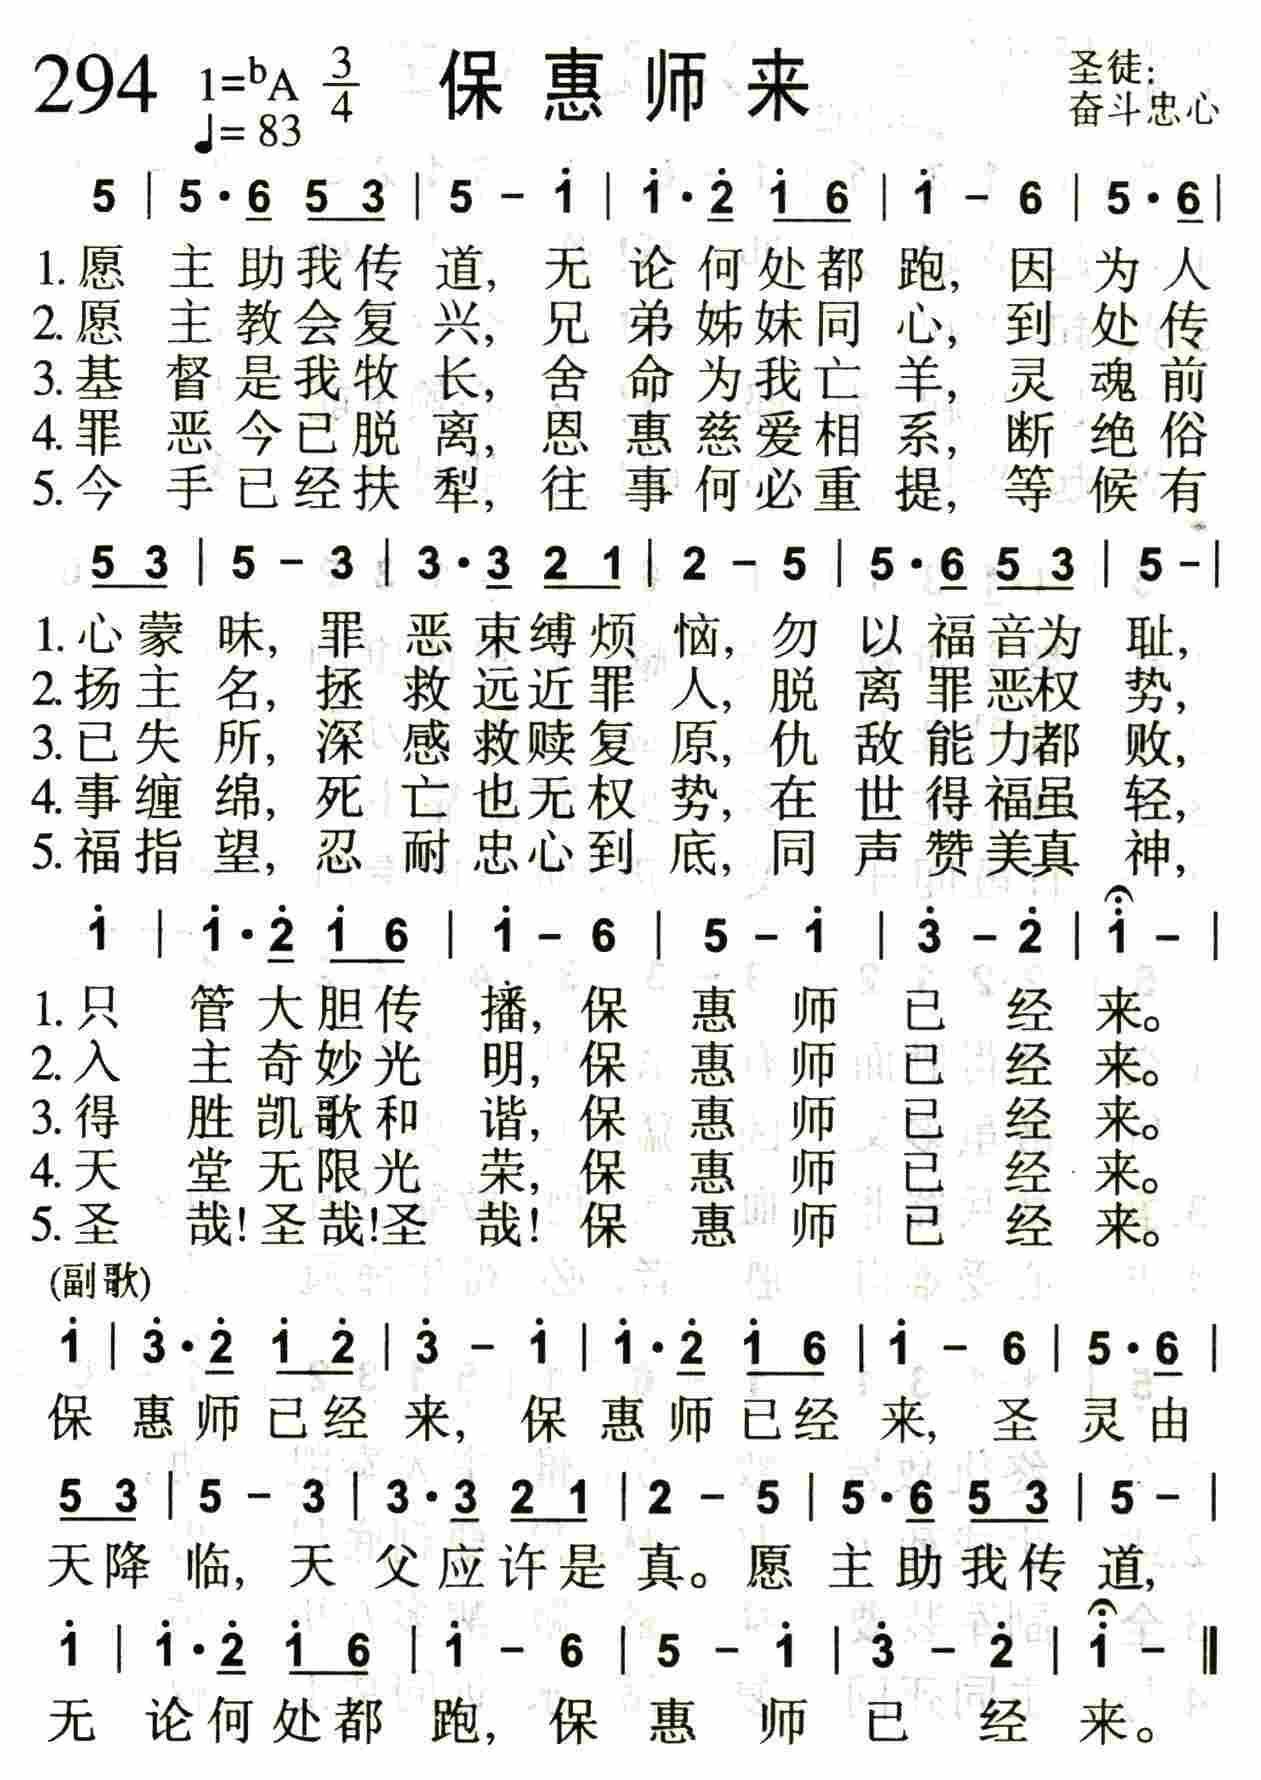 294 1=ᵇA 3/4 保惠师来 圣徒:
♩= 83 奋斗忠心
5 | 5·6 5 3 | 5 - i | i·2̇ i 6 | i - 6 | 5·6 |
1.愿主助我传道,无论何处都跑,因为人
2.愿主教会复兴,兄弟姊妹同心,到处传
3.基督是我牧长,舍命为我亡羊,灵魂前
4.罪恶今已脱离,恩惠慈爱相系,断绝俗
5.今手已经扶犁,往事何必重提,等候有
5 3 | 5 - 3 | 3·3 2 1 | 2 - 5 | 5·6 5 3 | 5 - |
1.心蒙昧,罪恶束缚烦恼,勿以福音为耻,
2.扬主名,拯救远近罪人,脱离罪恶权势,
3.已失所,深感救赎复原,仇敌能力都败,
4.事缠绵,死亡也无权势,在世得福虽轻,
5.福指望,忍耐忠心到底,同声赞美真神,
i | i·2̇ i 6 | i - 6 | 5 - i | 3̇ - 2̇ | i - |
1.只管大胆传播,保惠师已经来。
2.入主奇妙光明,保惠师已经来。
3.得胜凯歌和谐,保惠师已经来。
4.天堂无限光荣,保惠师已经来。
5.圣哉!圣哉!圣哉!保惠师已经来。
(副歌)
i | 3̇·2̇ i 2̇ | 3̇ - i | i·2̇ i 6 | i - 6 | 5·6 |
保惠师已经来,保惠师已经来,圣灵由
5 3 | 5 - 3 | 3·3 2 1 | 2 - 5 | 5·6 5 3 | 5 - |
天降临,天父应许是真。愿主助我传道,
i | i·2̇ i 6 | i - 6 | 5 - i | 3̇ - 2̇ | i - ‖
无论何处都跑,保惠师已经来。